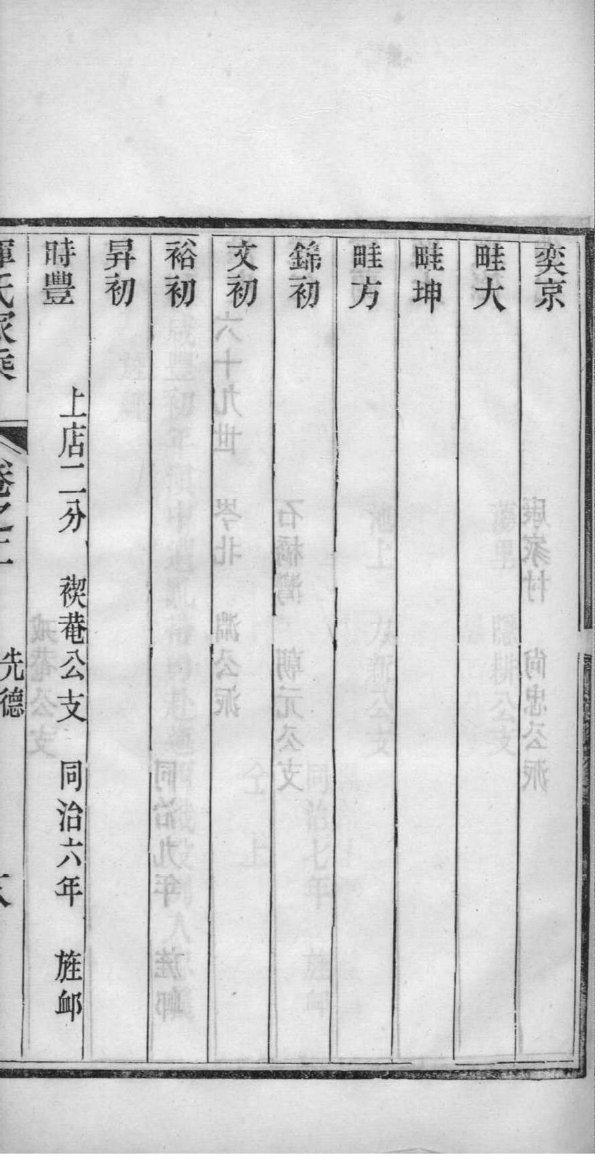 奕京
畦大
畦坤
畦方
錦初
文初
裕初
昇初
時豐 上店二分 禊菴公支 同治六年 旌卹
惲氏家乘 卷之二 先德